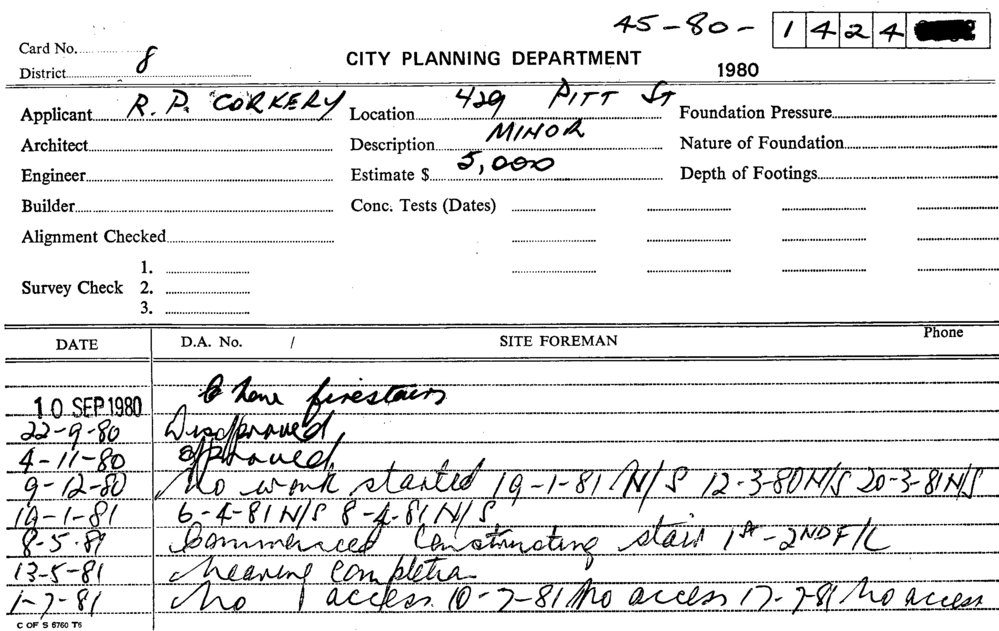 45-80- 1 4 2 4
Card No. CITY PLANNING DEPARTMENT
District 8 1980
Applicant R. P. CORKERY Location 429 PITT ST Foundation Pressure
Architect Description MINOR Nature of Foundation
Engineer Estimate $ 5,000 Depth of Footings
Builder Conc. Tests (Dates)
Alignment Checked
1.
Survey Check 2.
3.
DATE D.A. No. / SITE FOREMAN Phone
firestairs
10 SEP 1980
22-9-80 Disapproved
4-11-80 approved
9-12-80 No work started 19-1-81 N/S 12-3-80 N/S 20-3-81 N/S
19-1-81 6-4-81 N/S 8-4-81 N/S
8-5-81 Commenced Constructing stair 1st-2ND F/L
13-5-81 Nearing completion
1-7-81 No access 10-7-81 No access 17-7-81 No access
C OF S 6760 T6